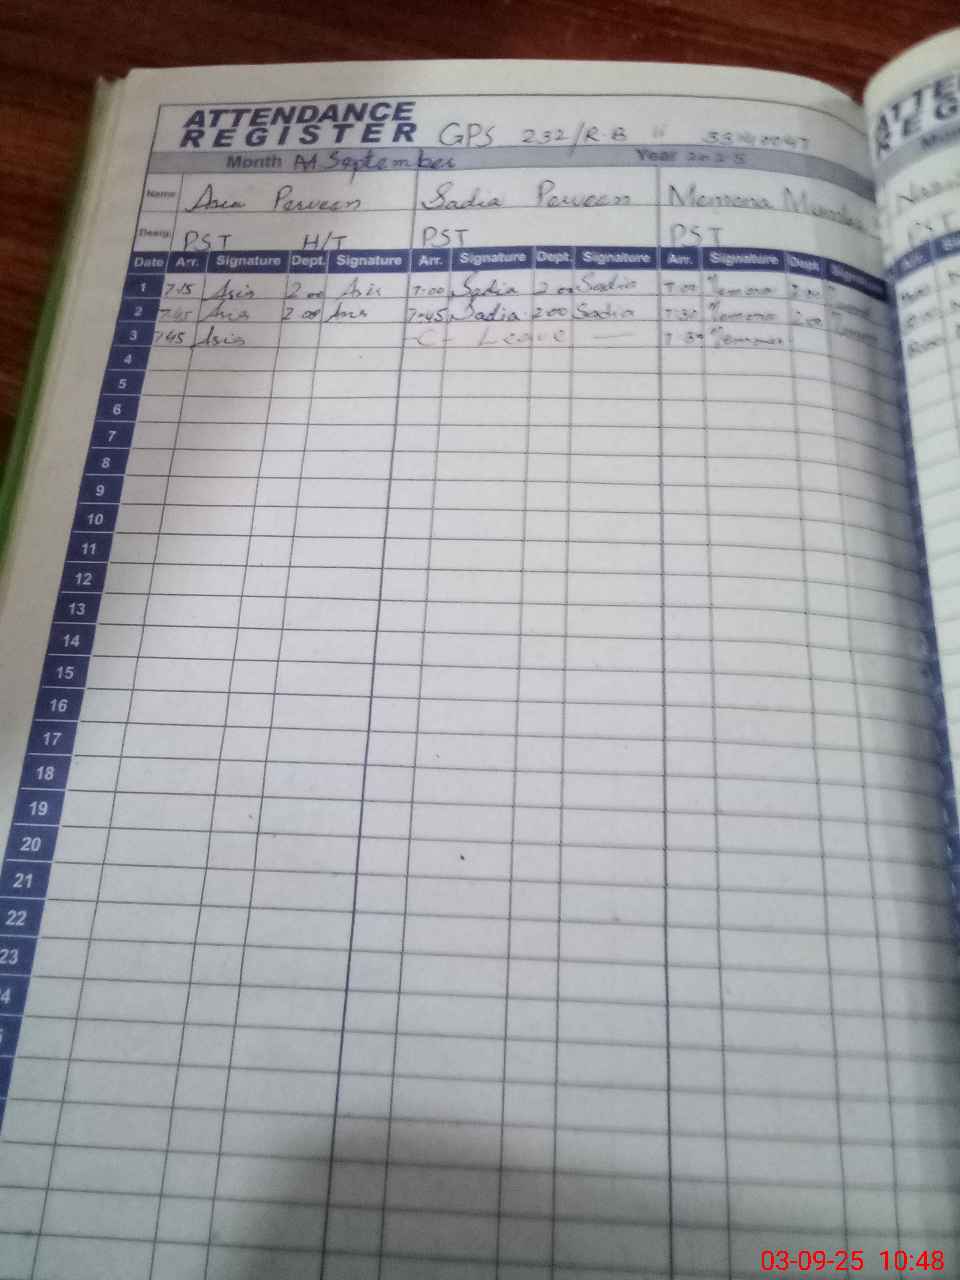 ATTENDANCE
REGISTER GPS 232/R.B
Month September Year 2025
Name Asia Perveen Sadia Perveen Memona
Desig. PST H/T PST PST
Date Arr. Signature Dept. Signature Arr. Signature Dept. Signature Arr. Signature Dept. Signature
1 7:15 Asia 2 00 Asia 7:00 Sadia 2 00 Sadia 7:00 Memona 2:00
2 7:45 Asia 2 00 Asia 7:45 Sadia 2 00 Sadia 7:30 Memona 2:00
3 7:45 Asia C- Leave — 7:30 Memona
4
5
6
7
8
9
10
11
12
13
14
15
16
17
18
19
20
21
22
23
03-09-25 10:48